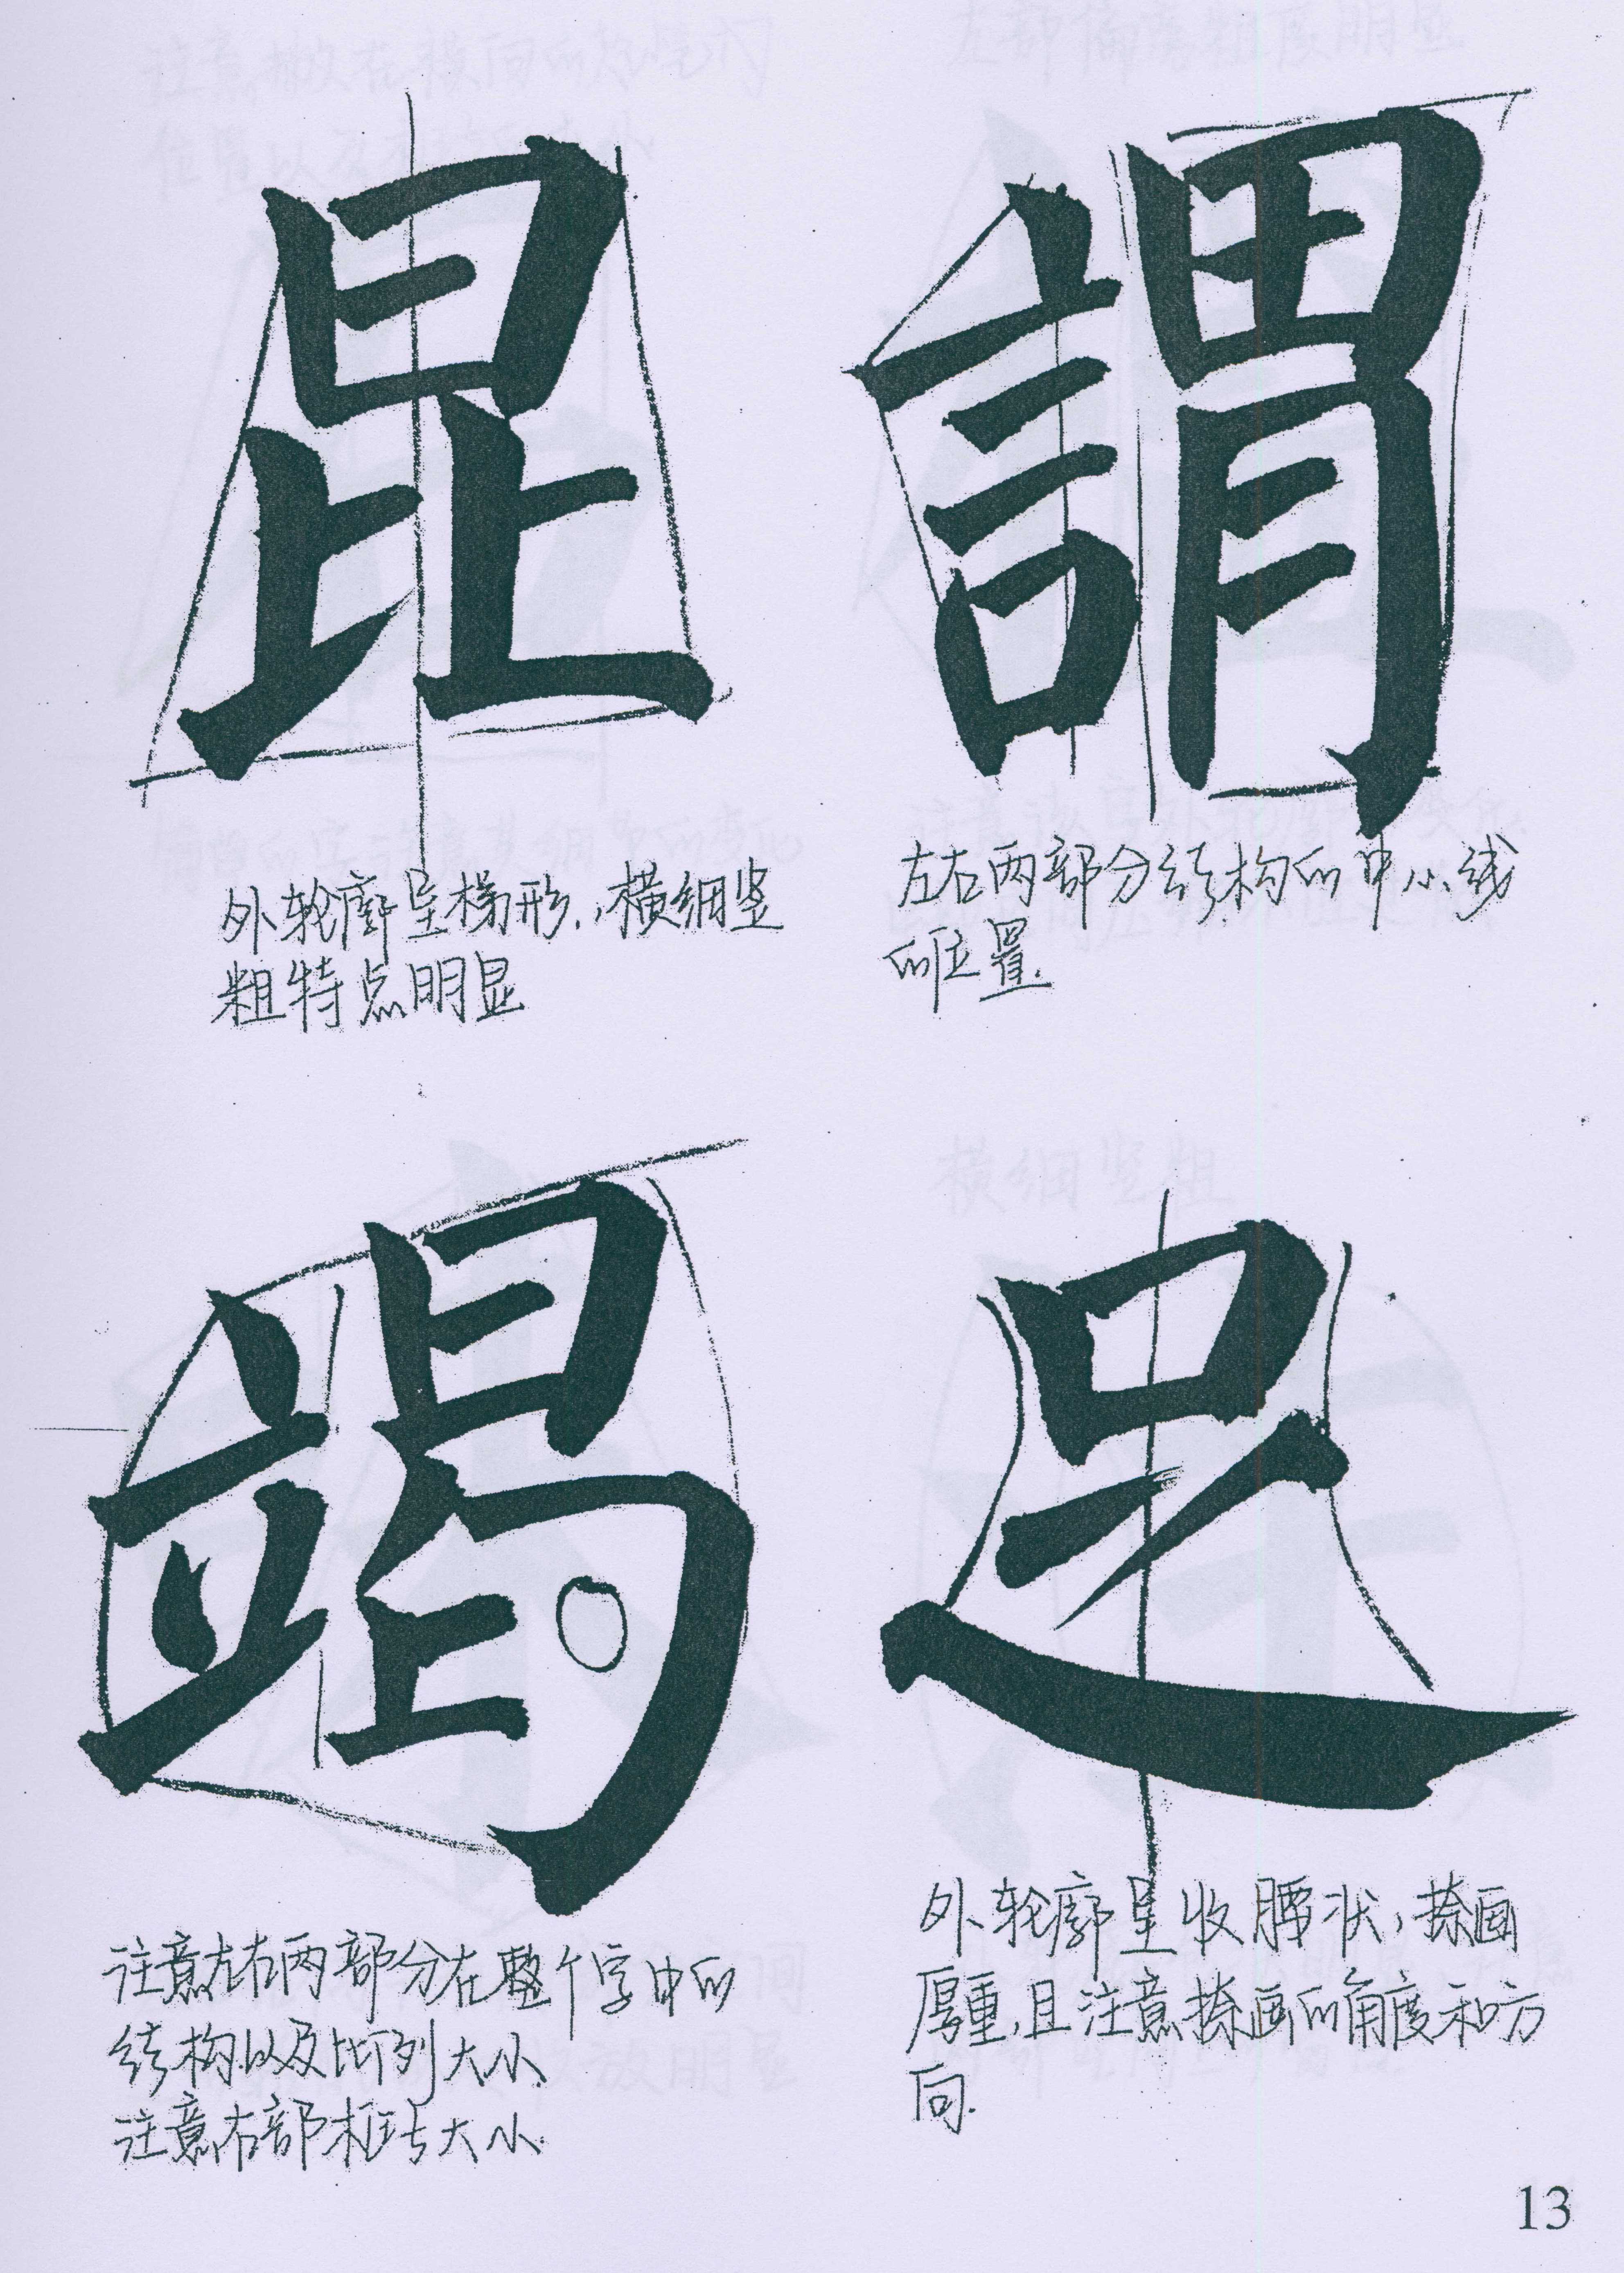 昆
謂
外轮廓呈梯形,横细竖
粗特点明显
左右两部分结构的中心线
的位置.
竭
足
注意左右两部分在整个字中的
结构以及比列大小
注意右部框内大小.
外轮廓呈收腰状,捺画
厚重,且注意捺画的角度和方
向.
13